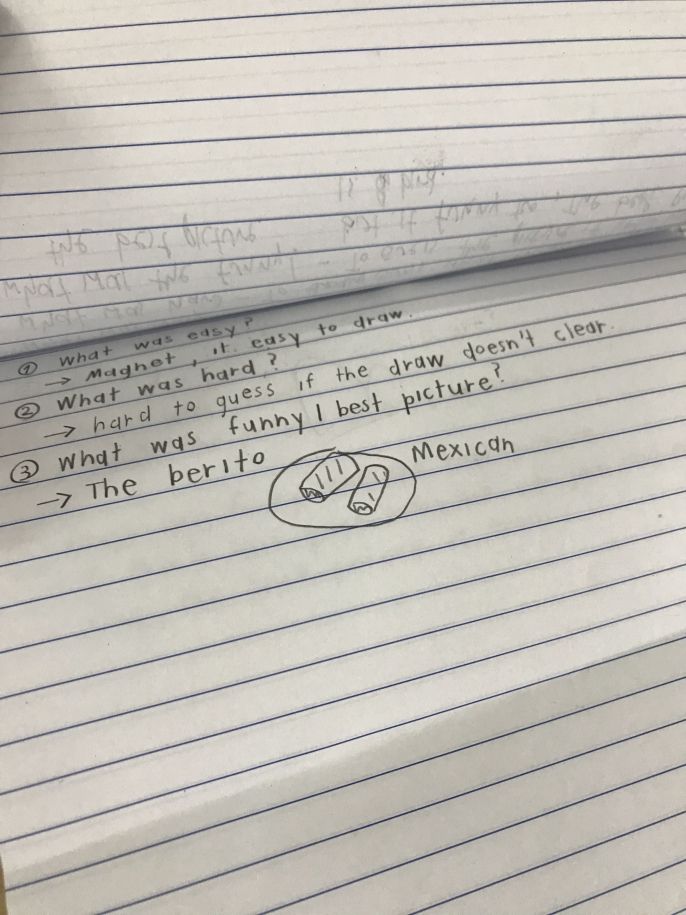 ① What was easy?
→ Magnet, it easy to draw.
② What was hard?
→ hard to guess if the draw doesn't clear.
③ What was funny / best picture?
→ The berito Mexican